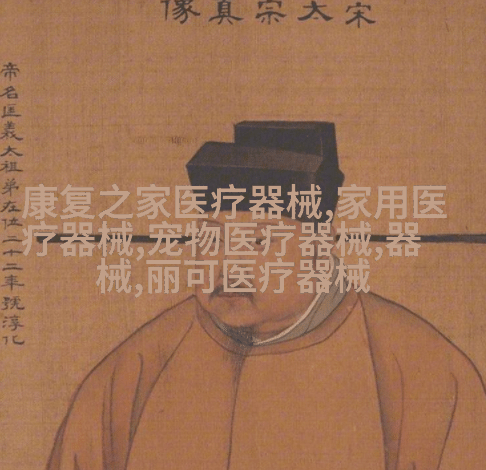 宋太宗真像
帝名匡義太祖弟在位二十二年號淳化
康复之家医疗器械,家用医
疗器械,宠物医疗器械,器
械,丽可医疗器械